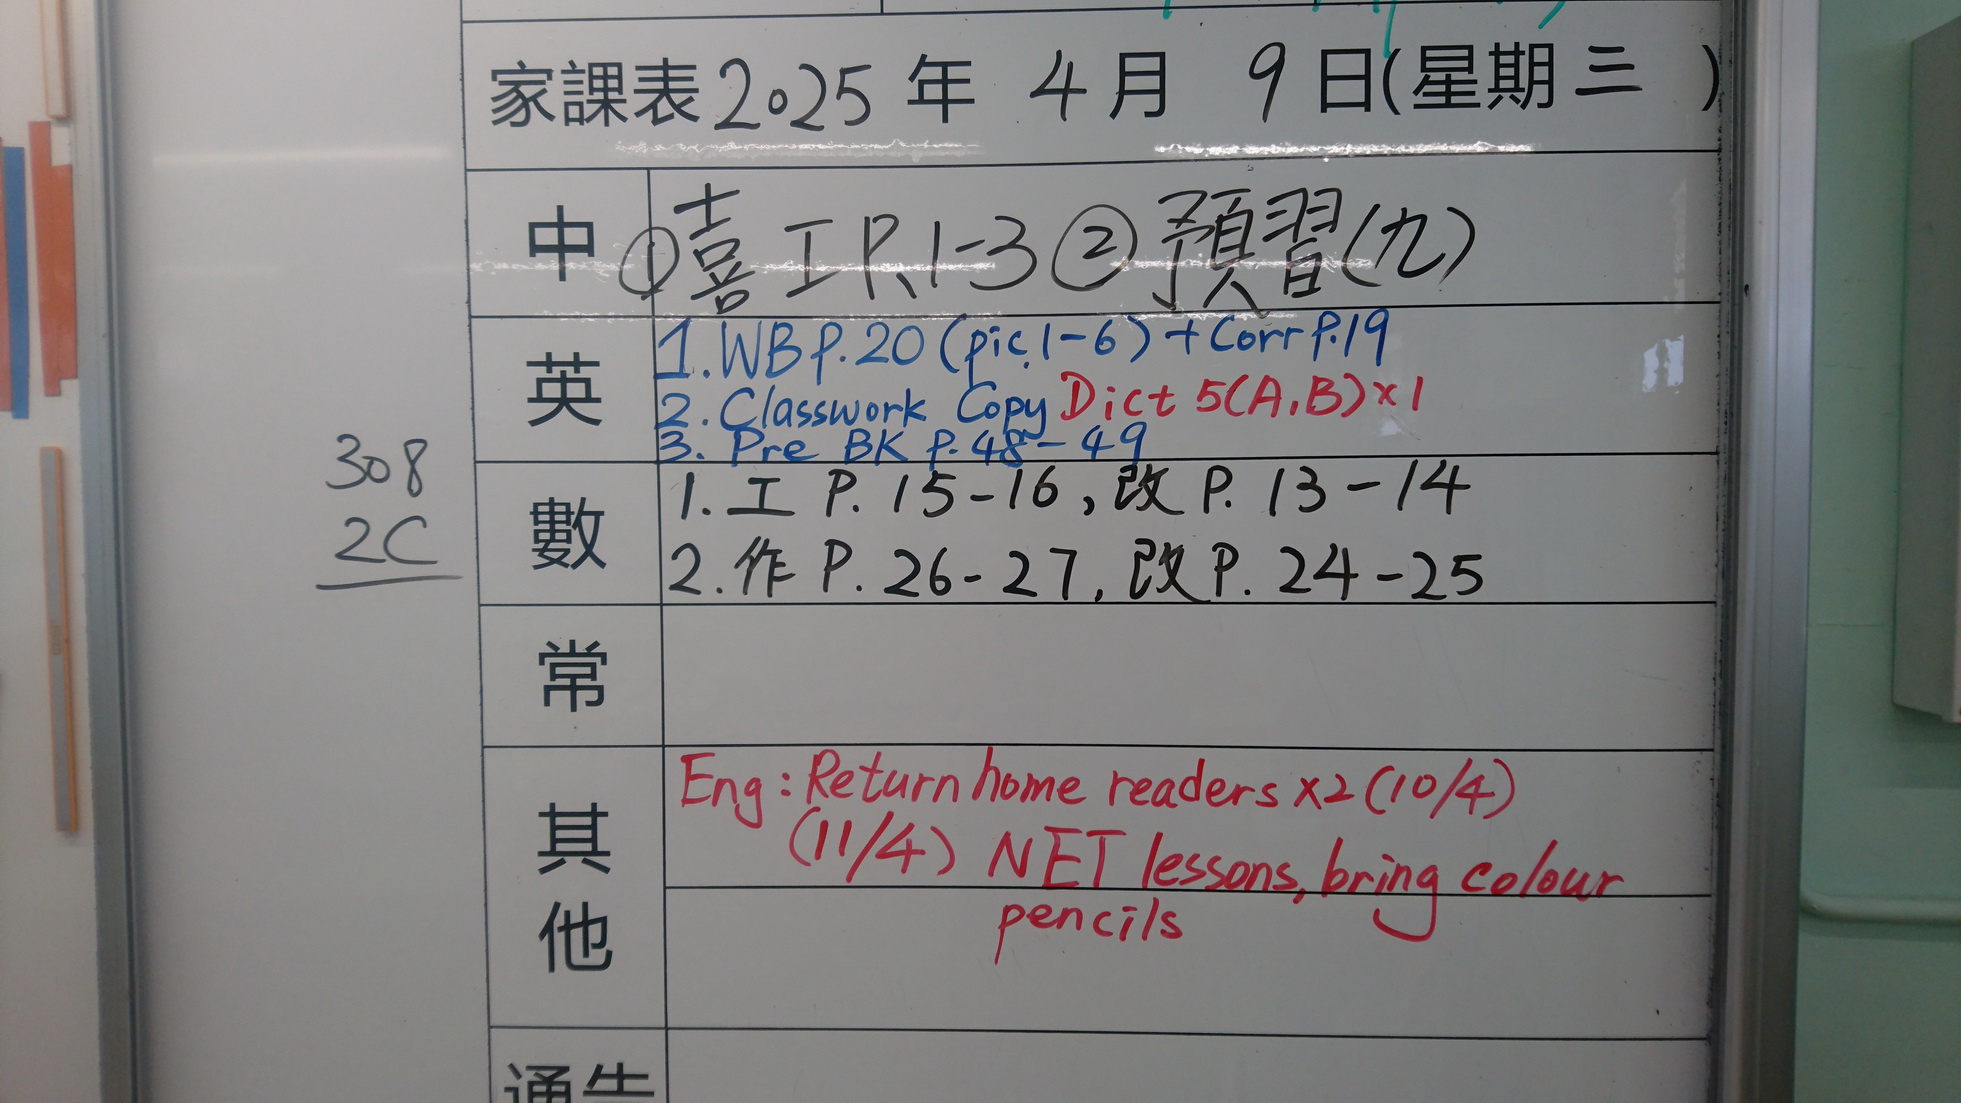 家課表2025年 4月 9日(星期三 )
中 ①喜 工 P.1-3 ②預習(九)
英
1. WB P.20 (pic.1-6) + Corr P.19
2. Classwork Copy Dict 5(A,B)×1
3. Pre BK P.48-49
308
2C
數
1. 工 P. 15-16, 改 P. 13-14
2. 作 P. 26-27, 改 P. 24-25
常
其他
Eng: Return home readers ×2 (10/4)
(11/4) NET lessons, bring colour
pencils
通告